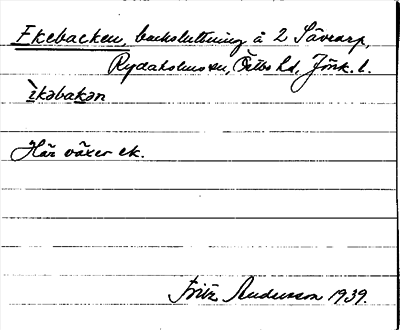 Ekebacken, backsluttning å 2 Sävearp,
Rydaholms sn, Östbo hd, Jönk. l.
ìkəbakən
Här växer ek.
Fritz Andersson 1939.